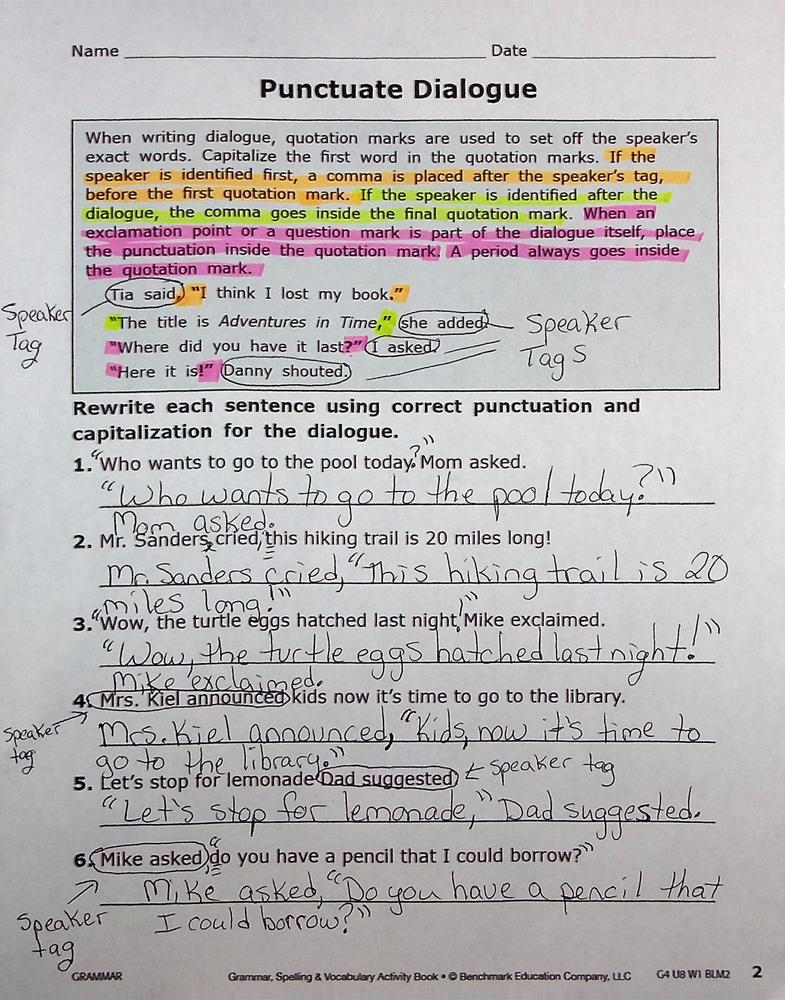 Name Date
Punctuate Dialogue
When writing dialogue, quotation marks are used to set off the speaker's
exact words. Capitalize the first word in the quotation marks. If the
speaker is identified first, a comma is placed after the speaker's tag,
before the first quotation mark. If the speaker is identified after the
dialogue, the comma goes inside the final quotation mark. When an
exclamation point or a question mark is part of the dialogue itself, place
the punctuation inside the quotation mark. A period always goes inside
the quotation mark.
Tia said, "I think I lost my book."
Speaker
Tag
"The title is Adventures in Time," she added.
"Where did you have it last?" I asked.
"Here it is!" Danny shouted.
Speaker
Tags
Rewrite each sentence using correct punctuation and
capitalization for the dialogue.
1. "Who wants to go to the pool today?" Mom asked.
"Who wants to go to the pool today?"
Mom asked.
2. Mr. Sanders, cried, "this hiking trail is 20 miles long!
Mr. Sanders cried, "This hiking trail is 20
miles long!"
3. "Wow, the turtle eggs hatched last night!" Mike exclaimed.
"Wow, the turtle eggs hatched last night!"
Mike exclaimed.
4. Mrs. Kiel announced kids now it's time to go to the library.
Speaker
tag
Mrs. Kiel announced, "Kids, now it's time to
go to the library."
5. Let's stop for lemonade Dad suggested. speaker tag
"Let's stop for lemonade," Dad suggested.
6. Mike asked "do you have a pencil that I could borrow?"
Mike asked, "Do you have a pencil that
Speaker
tag
I could borrow?"
GRAMMAR Grammar, Spelling & Vocabulary Activity Book • © Benchmark Education Company, LLC G4 U8 W1 BLM2 2